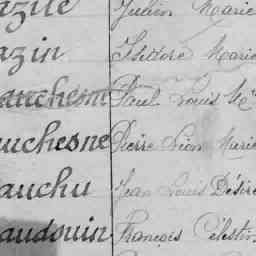 azile Julien Marie
azin Isidore Marie
auchesne Paul Louis M
auchesne Pierre Léon Marie
auchu Jean Louis Désiré
audouin François Célestin